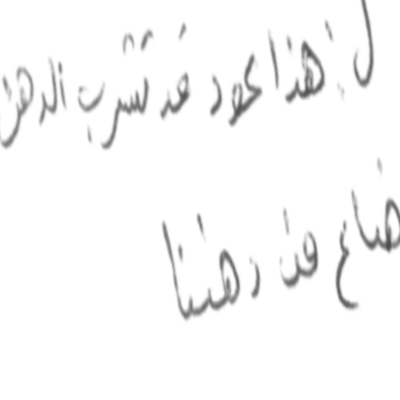 ل: هذا عود قد تشرب الدهن
ضاع من دهننا